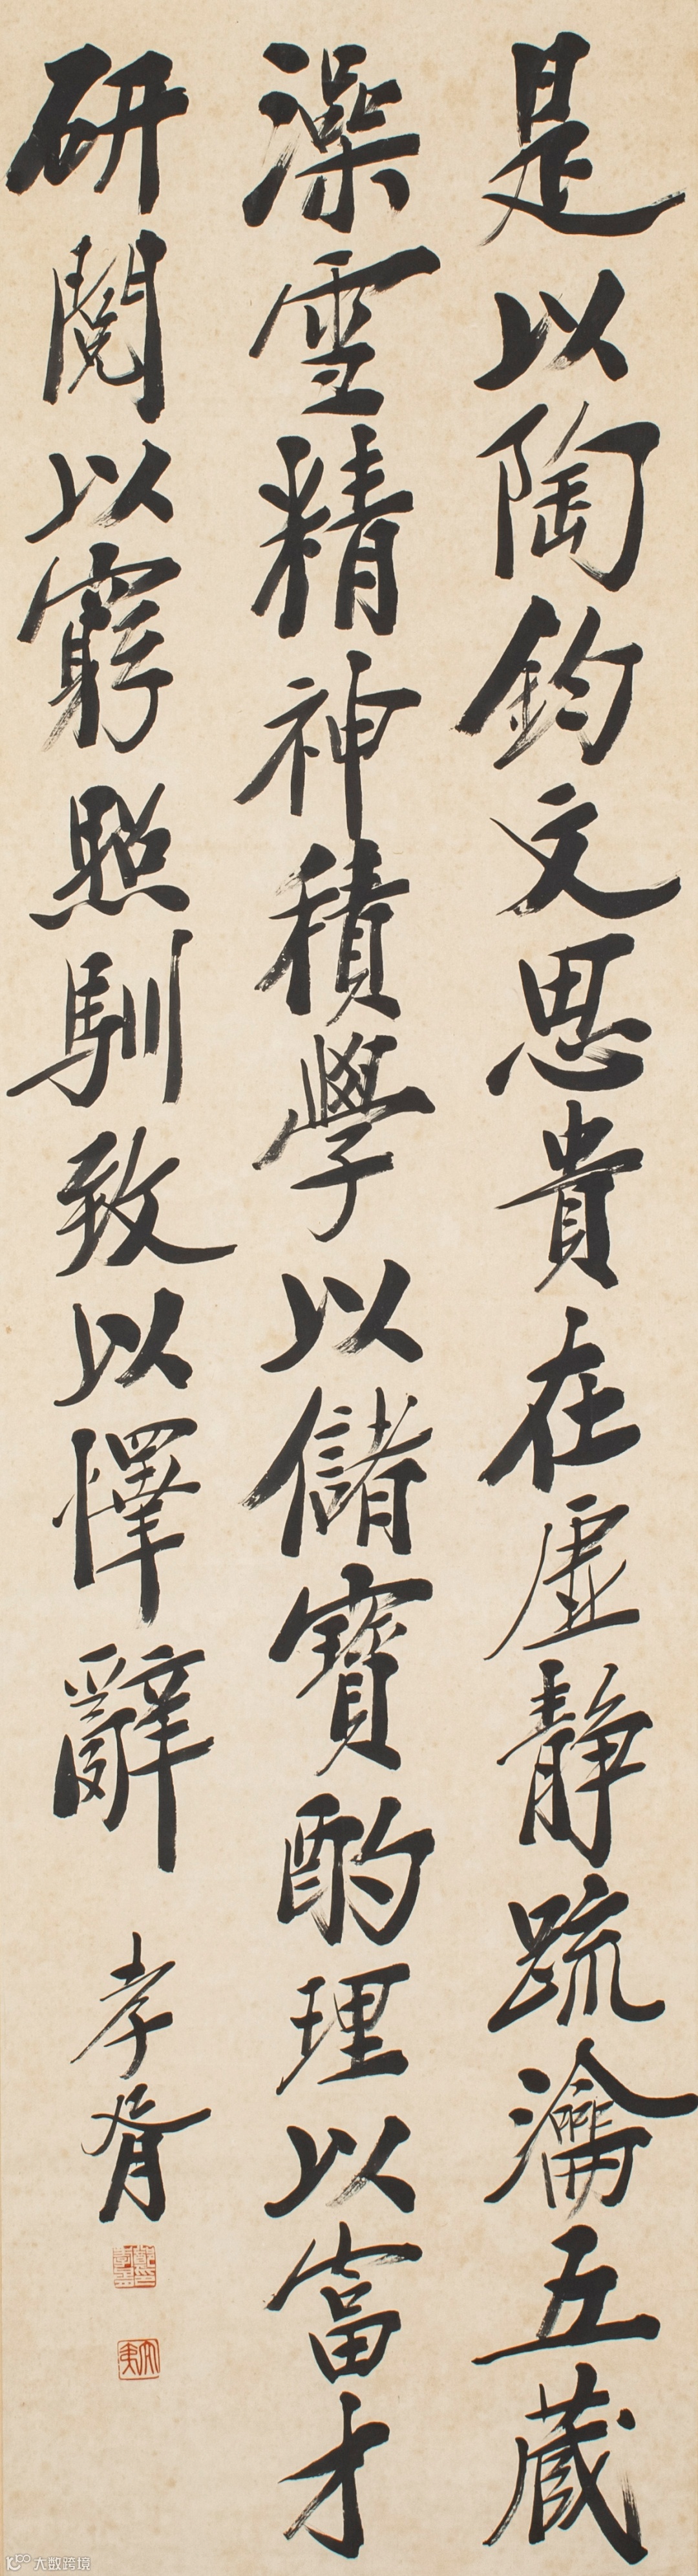 是以陶鈞文思貴在虛靜疏瀹五藏
澡雪精神積學以儲寶酌理以富才
研閱以窮照馴致以懌辭
孝胥
大数跨境